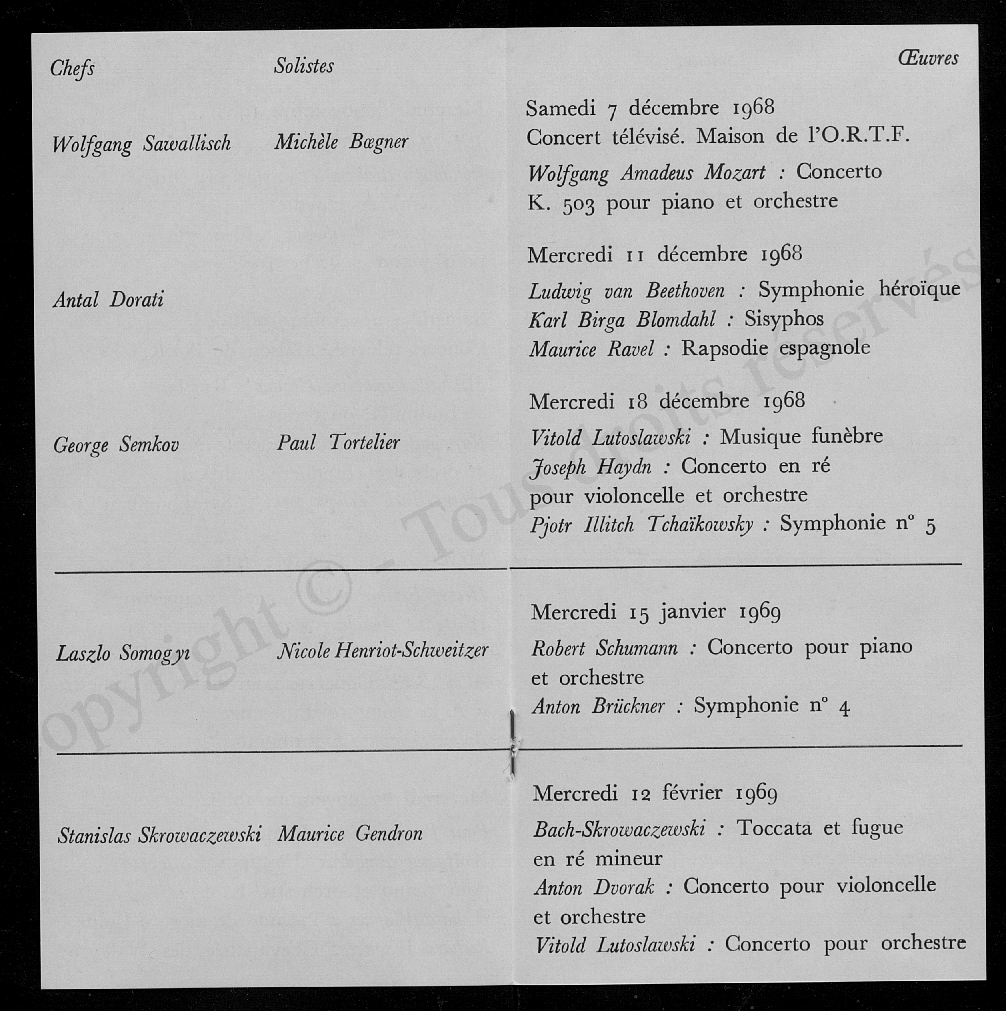 Chefs Solistes Œuvres
Samedi 7 décembre 1968
Wolfgang Sawallisch Michèle Bœgner Concert télévisé. Maison de l'O.R.T.F.
Wolfgang Amadeus Mozart : Concerto
K. 503 pour piano et orchestre
Mercredi 11 décembre 1968
Antal Dorati Ludwig van Beethoven : Symphonie héroïque
Karl Birga Blomdahl : Sisyphos
Maurice Ravel : Rapsodie espagnole
Mercredi 18 décembre 1968
George Semkov Paul Tortelier Vitold Lutoslawski : Musique funèbre
Joseph Haydn : Concerto en ré
pour violoncelle et orchestre
Pjotr Illitch Tchaïkowsky : Symphonie n° 5
Mercredi 15 janvier 1969
Laszlo Somogyi Nicole Henriot-Schweitzer Robert Schumann : Concerto pour piano
et orchestre
Anton Brückner : Symphonie n° 4
Mercredi 12 février 1969
Stanislas Skrowaczewski Maurice Gendron Bach-Skrowaczewski : Toccata et fugue
en ré mineur
Anton Dvorak : Concerto pour violoncelle
et orchestre
Vitold Lutoslawski : Concerto pour orchestre
opyright © - Tous droits réservés